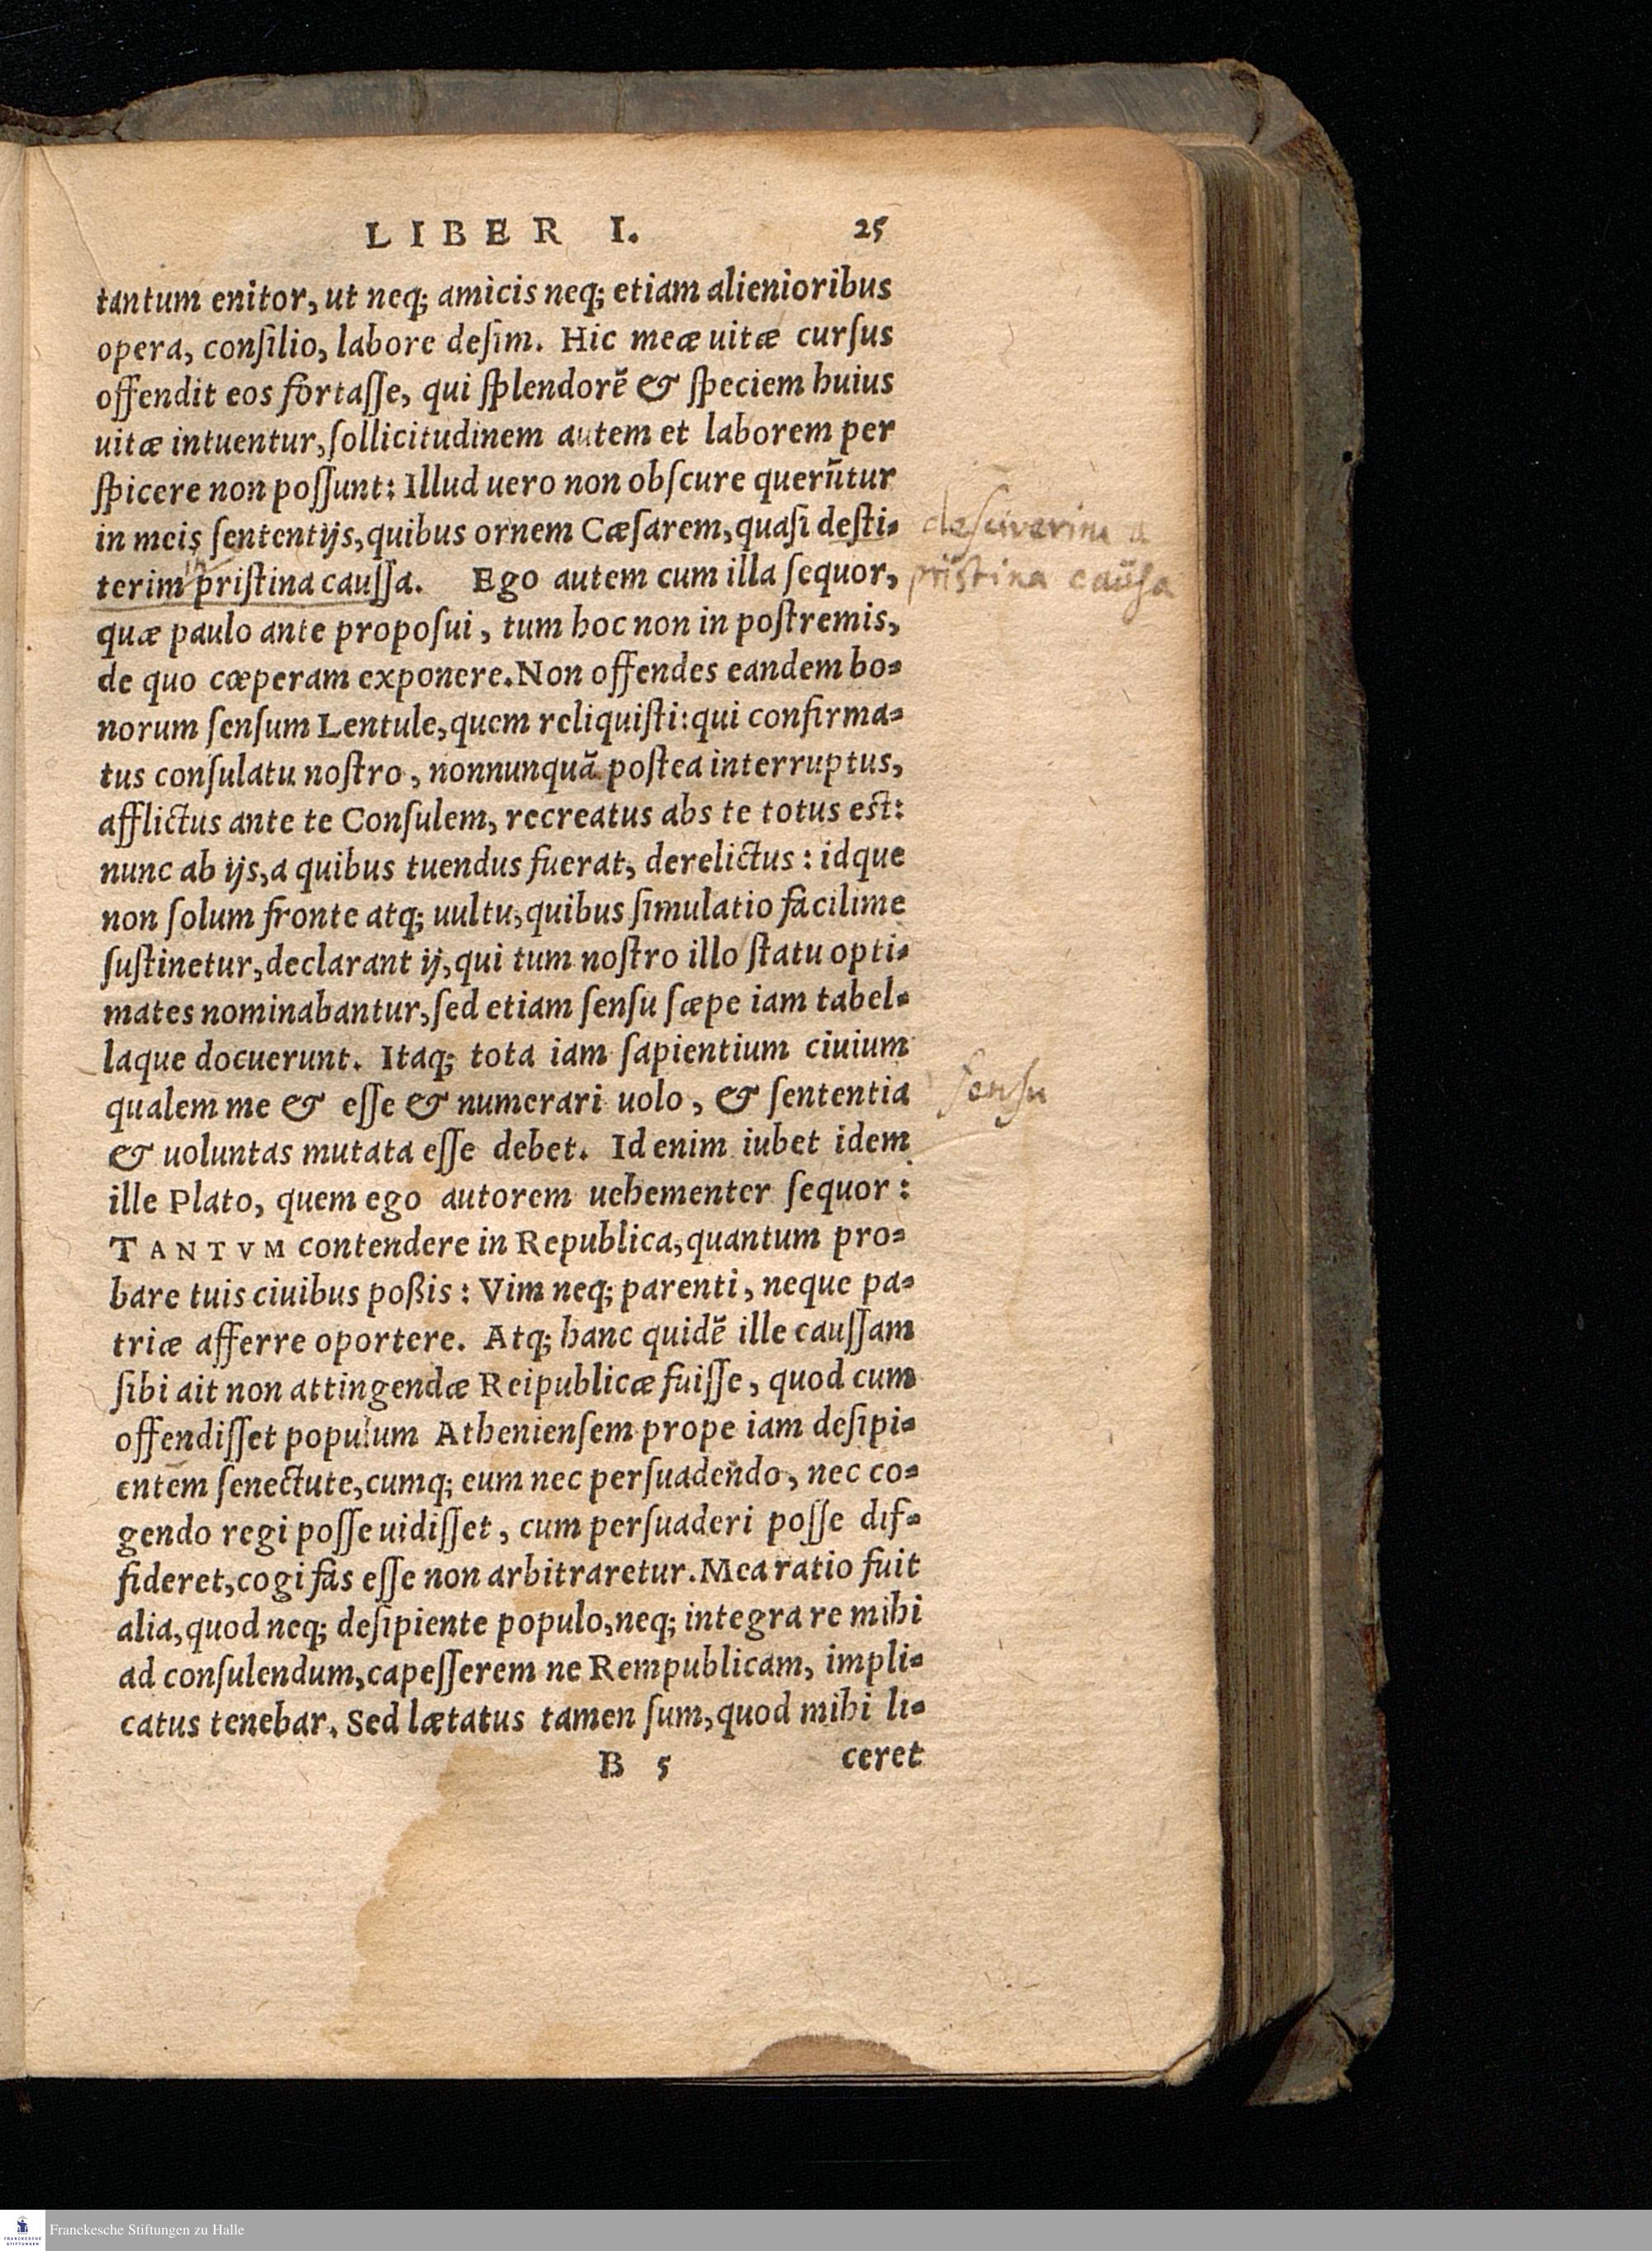 LIBER I. 25
tantum enitor, ut neq; amicis neq; etiam alienioribus
opera, conſilio, labore deſim. Hic meæ uitæ curſus
offendit eos fortaſſe, qui ſplendorẽ & ſpeciem huius
uitæ intuentur, ſollicitudinem autem et laborem per
ſpicere non poſſunt: Illud uero non obſcure querũtur
in meis ſententijs, quibus ornem Cæſarem, quaſi deſti-
deſciverim a
in
terim priſtina cauſſa. Ego autem cum illa ſequor,
priſtina cauſa
quæ paulo ante propoſui, tum hoc non in poſtremis,
de quo cœperam exponere. Non offendes eandem bo-
norum ſenſum Lentule, quem reliquiſti: qui confirma-
tus conſulatu noſtro, nonnunquã poſtea interruptus,
afflictus ante te Conſulem, recreatus abs te totus eſt:
nunc ab ijs, a quibus tuendus fuerat, derelictus: idque
non ſolum fronte atq; uultu, quibus ſimulatio facilime
ſuſtinetur, declarant ij, qui tum noſtro illo ſtatu opti-
mates nominabantur, ſed etiam ſenſu ſæpe iam tabel-
laque docuerunt. Itaq; tota iam ſapientium ciuium
qualem me & eſſe & numerari uolo, & ſententia
ſenſu
& uoluntas mutata eſſe debet. Id enim iubet idem
ille Plato, quem ego autorem uehementer ſequor:
TANTVM contendere in Republica, quantum pro-
bare tuis ciuibus poßis: Vim neq; parenti, neque pa-
triæ afferre oportere. Atq; hanc quidẽ ille cauſſam
ſibi ait non attingendæ Reipublicæ fuiſſe, quod cum
offendiſſet populum Athenienſem prope iam deſipi-
entem ſenectute, cumq; eum nec perſuadendo, nec co-
gendo regi poſſe uidiſſet, cum perſuaderi poſſe dif-
fideret, cogi fas eſſe non arbitraretur. Mea ratio fuit
alia, quod neq; deſipiente populo, neq; integra re mihi
ad conſulendum, capeſſerem ne Rempublicam, impli-
catus tenebar. Sed lætatus tamen ſum, quod mihi li-
B 5 ceret
FRANCKESCHE STIFTUNGEN
Franckesche Stiftungen zu Halle